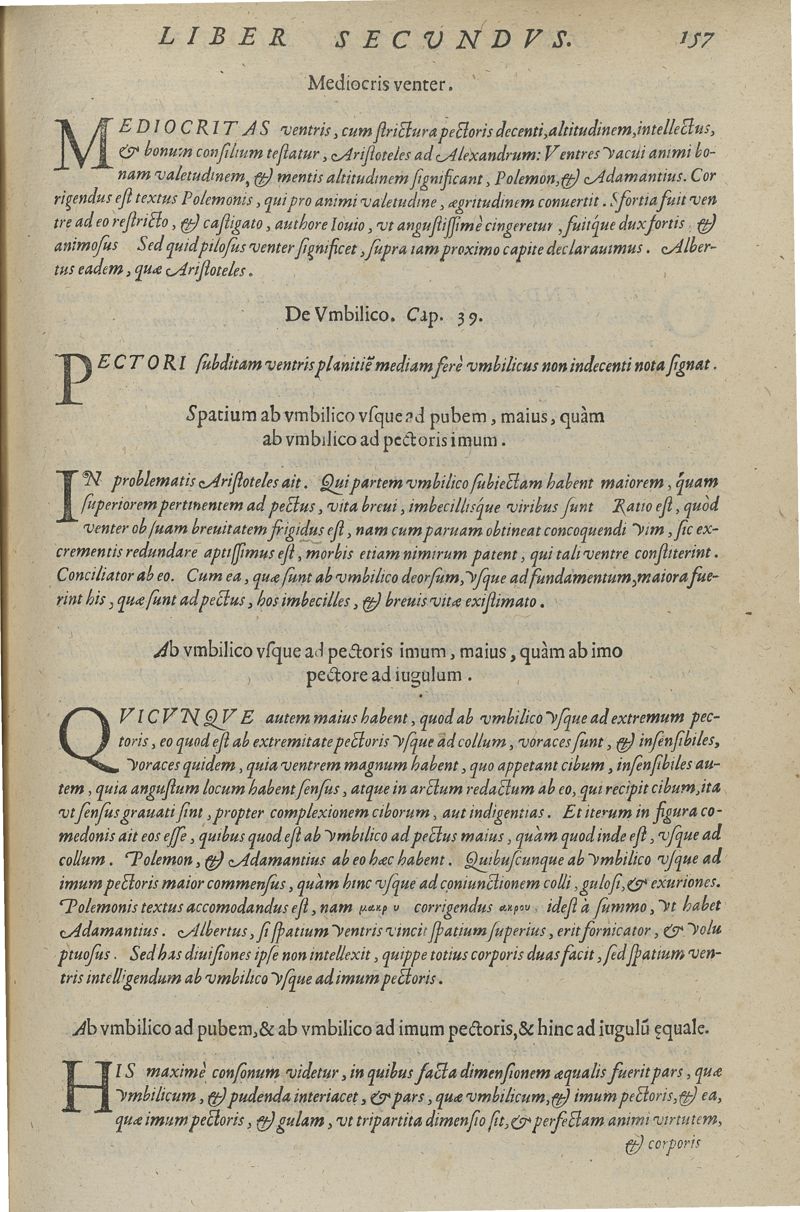 LIBER SECVNDVS. 157
Mediocris venter.
MEDIOCRITAS ventris, cum strictura pectoris decenti, altitudinem, intellectus,
& bonum consilium testatur, Aristoteles ad Alexandrum: Ventres vacui animi bo-
nam valetudinem, & mentis altitudinem significant, Polemon, & Adamantius. Cor
rigendus est textus Polemonis, qui pro animi valetudine, ægritudinem conuertit. Sfortia fuit ven
tre adeo restricto, & castigato, authore Iouio, vt angustissimè cingeretur, fuitq́ue dux fortis &
animosus Sed quid pilosus venter significet, supra iam proximo capite declarauimus. Alber-
tus eadem, quæ Aristoteles.
De Vmbilico. Cap. 39.
PECTORI subditam ventris planitiẽ mediam ferè vmbilicus non indecenti nota signat.
Spatium ab vmbilico vsque ad pubem, maius, quàm
ab vmbilico ad pectoris imum.
IN problematis Aristoteles ait. Qui partem vmbilico subiectam habent maiorem, quam
superiorem pertinentem ad pectus, vita breui, imbecillisq́ue viribus sunt Ratio est, quòd
venter ob suam breuitatem frigidus est, nam cum paruam obtineat concoquendi vim, sic ex-
crementis redundare aptissimus est, morbis etiam nimirum patent, qui tali ventre constiterint.
Conciliator ab eo. Cum ea, quæ sunt ab vmbilico deorsum, vsque ad fundamentum, maiora fue-
rint his, quæ sunt ad pectus, hos imbecilles, & breuis vitæ existimato.
Ab vmbilico vsque ad pectoris imum, maius, quàm ab imo
pectore ad iugulum.
QVICVNQVE autem maius habent, quod ab vmbilico vsque ad extremum pec-
toris, eo quod est ab extremitate pectoris vsque ad collum, voraces sunt, & insensibiles,
voraces quidem, quia ventrem magnum habent, quo appetant cibum, insensibiles au-
tem, quia angustum locum habent sensus, atque in arctum redactum ab eo, qui recipit cibum, ita
vt sensus grauati sint, propter complexionem ciborum, aut indigentias. Et iterum in figura co-
medonis ait eos esse, quibus quod est ab vmbilico ad pectus maius, quàm quod inde est, vsque ad
collum. Polemon, & Adamantius ab eo hæc habent. Quibuscunque ab vmbilico vsque ad
imum pectoris maior commensus, quàm hinc vsque ad coniunctionem colli, gulosi, & exuriones.
Polemonis textus accomodandus est, nam μακρ υ corrigendus ακρου idest à summo, vt habet
Adamantius. Albertus, si spatium ventris vincit spatium superius, erit fornicator, & volu
ptuosus. Sed has diuisiones ipse non intellexit, quippe totius corporis duas facit, sed spatium ven-
tris intelligendum ab vmbilico vsque ad imum pectoris.
Ab vmbilico ad pubem, & ab vmbilico ad imum pectoris, & hinc ad iugulũ ęquale.
HIS maximè consonum videtur, in quibus facta dimensionem æqualis fuerit pars, quæ
vmbilicum, & pudenda interiacet, & pars, quæ vmbilicum, & imum pectoris, & ea,
quæ imum pectoris, & gulam, vt tripartita dimensio sit, & perfectam animi virtutem,
& corporis